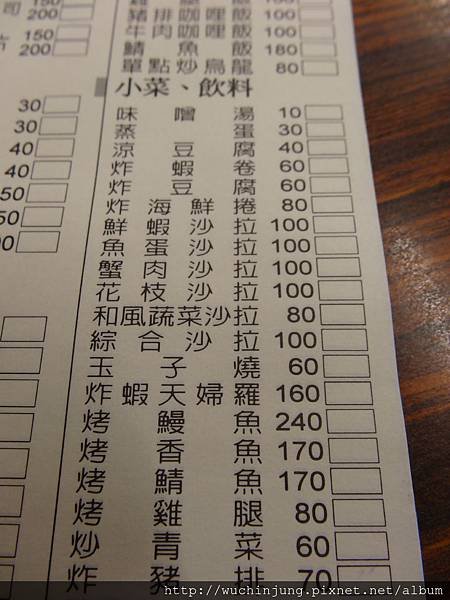 司 150
200
150
片 200
30
30
40
40
50
50
00
豬排咖哩飯
牛肉咖哩飯 100
鯖魚飯 180
單點炒烏龍 80
小菜、飲料
味噌湯 10
蒸蛋 30
涼豆腐 40
炸蝦卷 60
炸豆腐 60
炸海鮮捲 80
鮮蝦沙拉 100
魚蛋沙拉 100
蟹肉沙拉 100
花枝沙拉 100
和風蔬菜沙拉 80
綜合沙拉 100
玉子燒 60
炸蝦天婦羅 160
烤鰻魚 240
烤香魚 170
烤鯖魚 170
烤雞腿 80
炒青菜 60
炸豬排 70
http://wuchinjung.pixnet.net/album